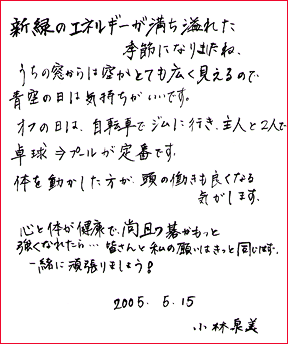 新緑のエネルギーが満ち溢れた
季節になりましたね。
うちの窓からは空がとても広く見えるので、
青空の日は気持ちがいいです。
オフの日は、自転車でジムに行き、主人と2人で
卓球→プールが定番です。
体を動かした方が、頭の働きも良くなる
気がします。
心と体が健康で、尚且つ碁がもっと
強くなれたら… 皆さんと私の願いはきっと同じはず。
一緒に頑張りましょう!
2005. 5.15
小林泉美